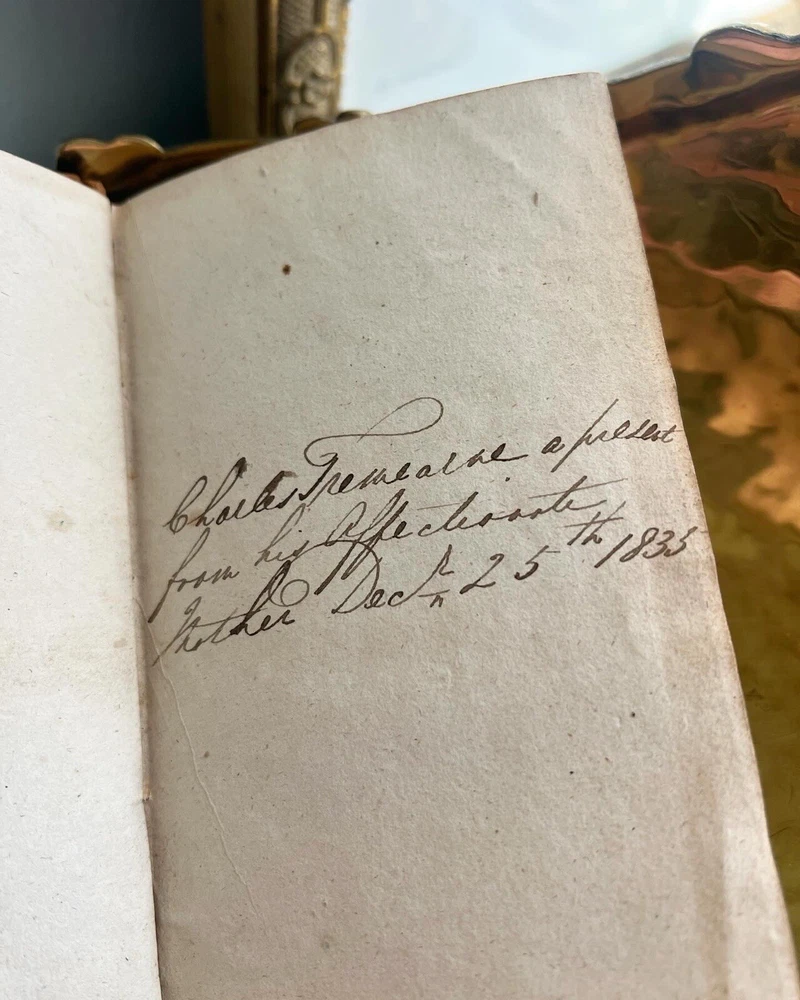 Charles Tremearne a present
from his Affectionate
Mother Decr 25th 1835